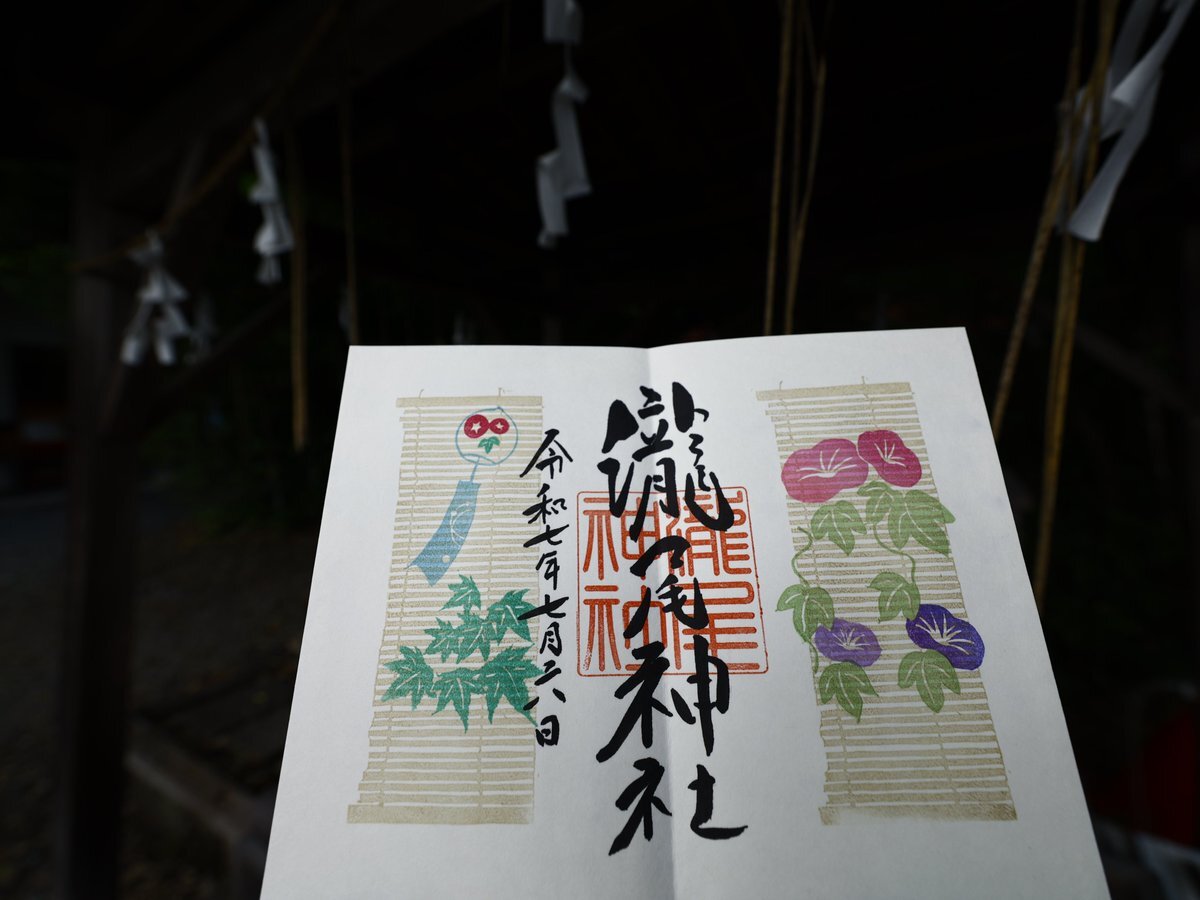 瀧尾神社
瀧尾
神社
令和七年七月二八日